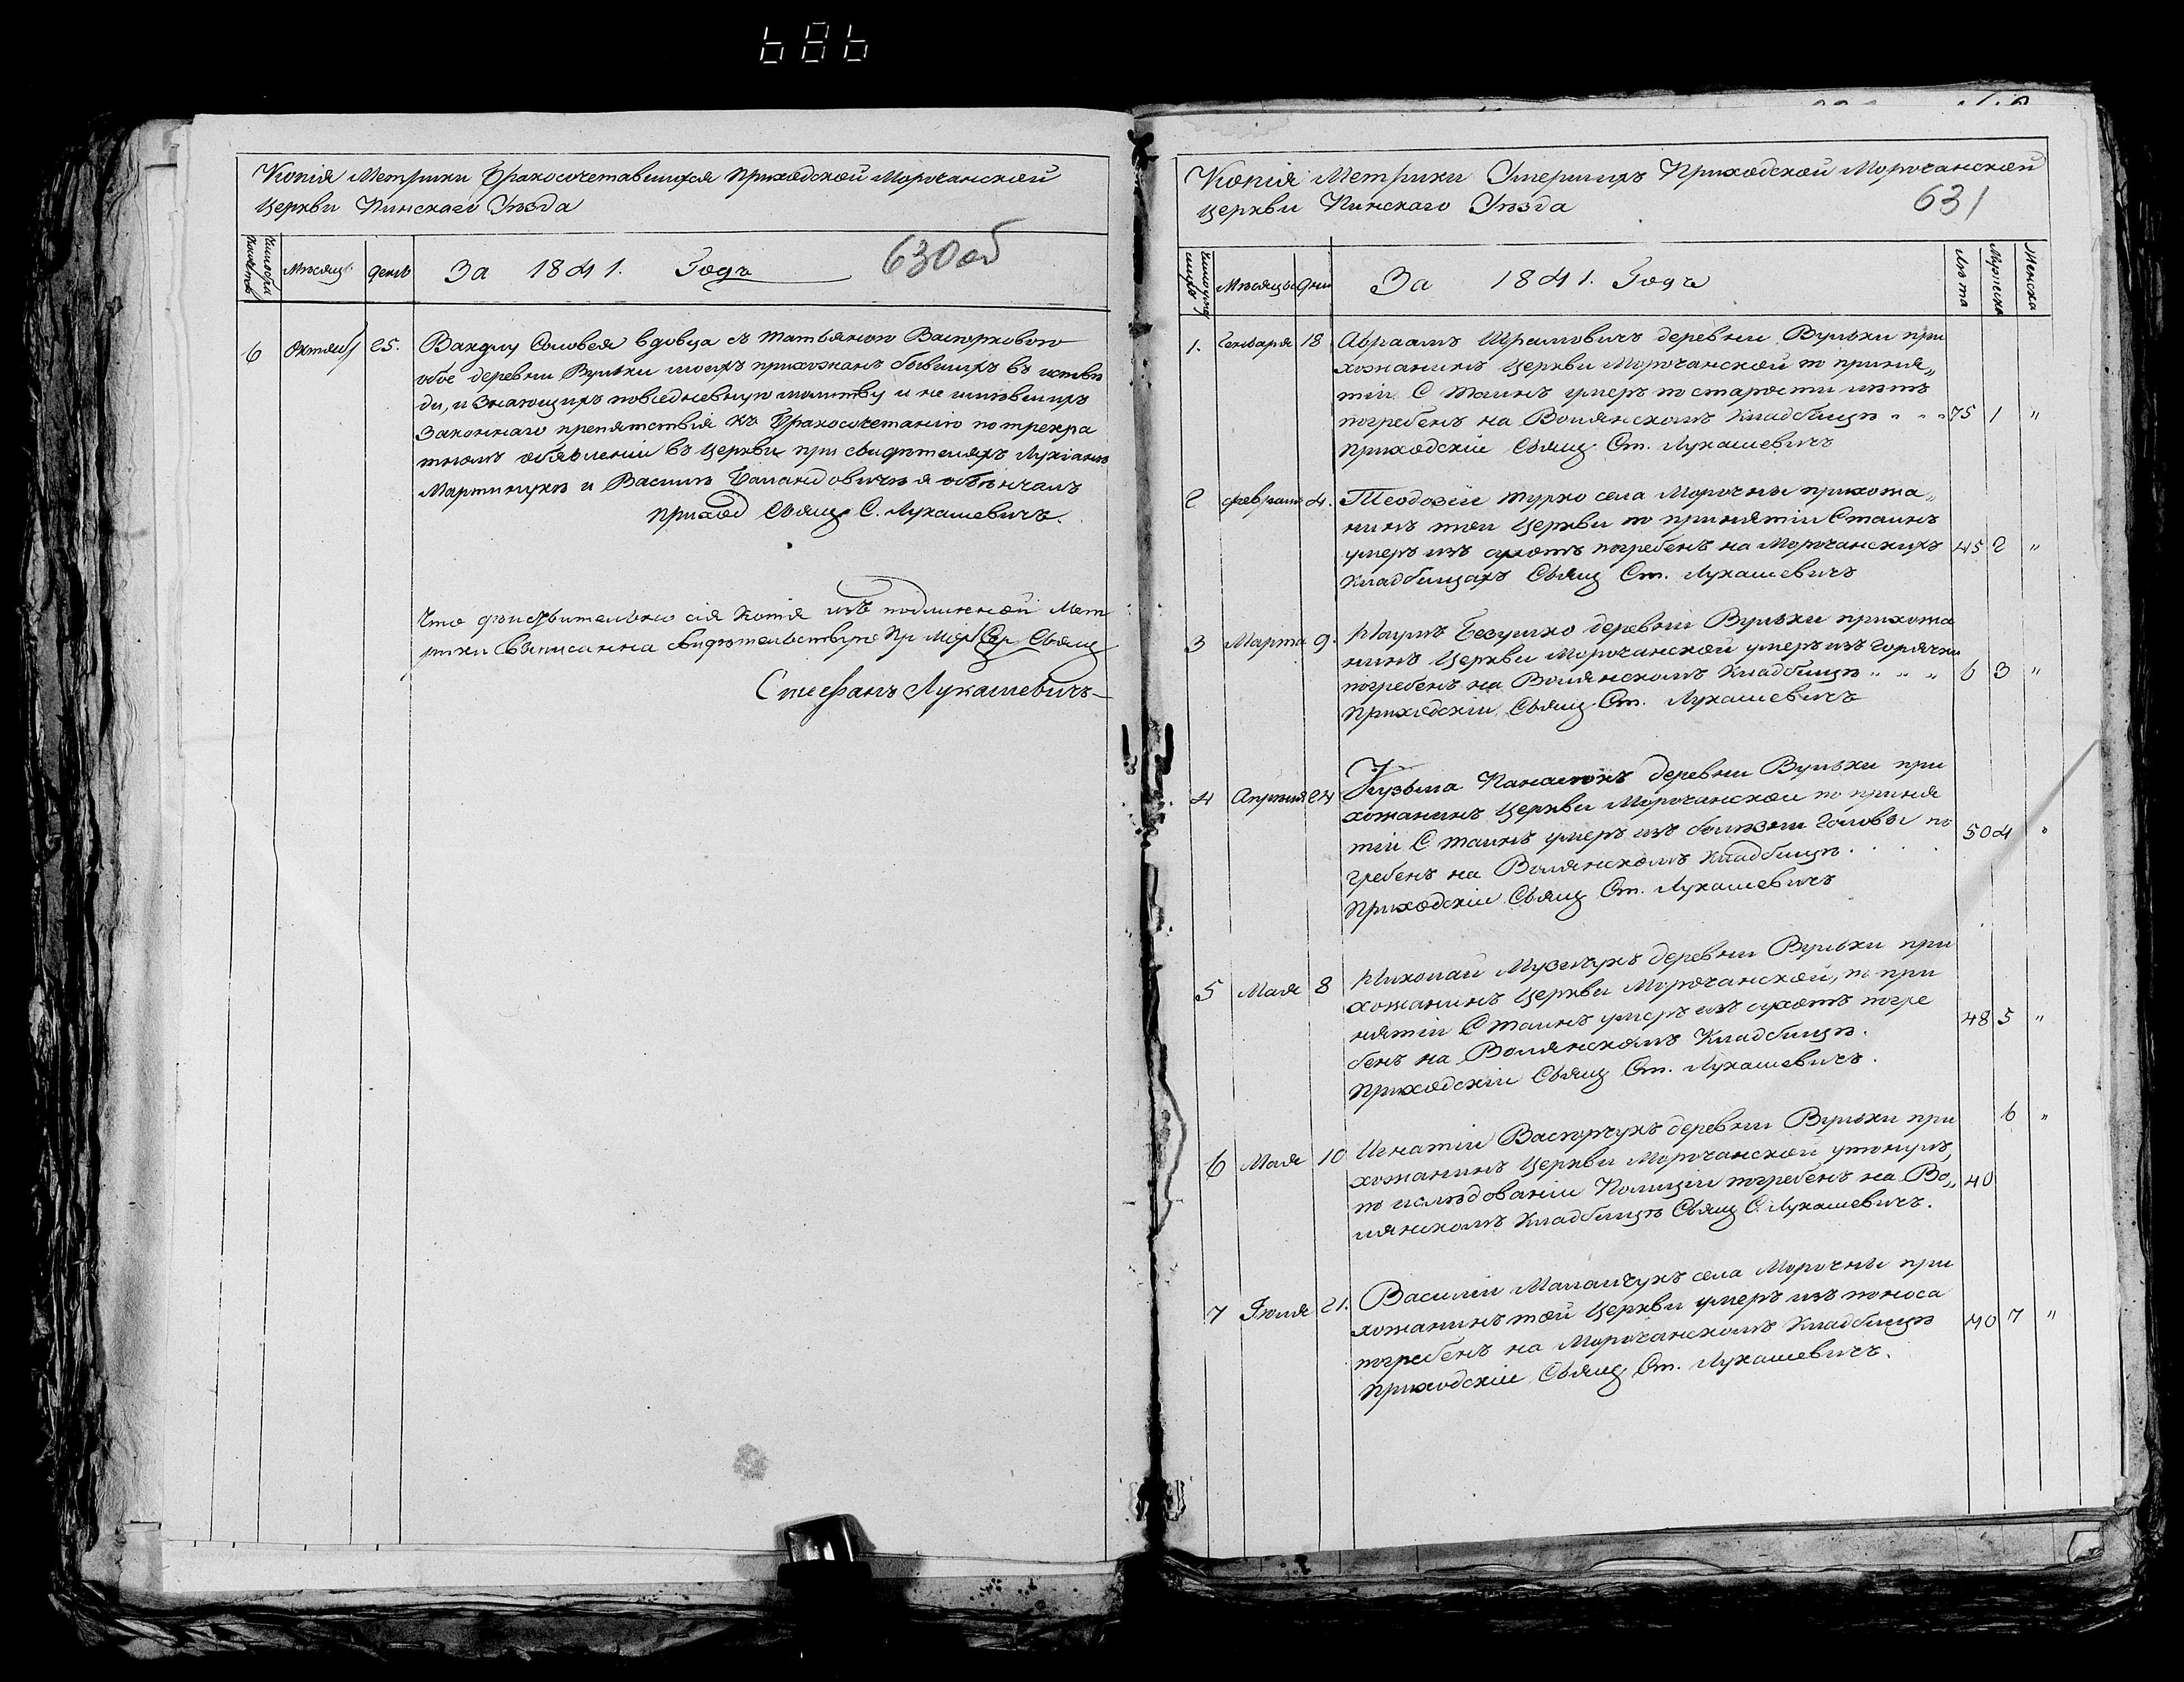 686
Копія Метрики Бракосочетавшихся Приходской Морочанской
Церкви Пинскаго Уѣзда
Мѣсяцъ День За 1841. Годъ 630об
6 Октяб 25. Вакулу Соловея вдовца съ Татьяною
обое деревни Вульки моихъ прихожанъ бывшихъ въ исповѣ
ди, и Знающихъ повседневную молитву и не имѣвшихъ
Законнаго препятствія къ Бракосочетанію по трекра
тномъ объявленіи въ Церкви при свидѣтеляхъ Лукіанѣ
Мартинукѣ и Василѣ я обвѣнчалъ
приход Свящ. С. Лукашевичъ.
Что дѣйствительно сія Копія изъ подлинной Мет
рики Выписанна свидѣтельствую Пр Мор Цер Свящ
Стефанъ Лукашевичъ
Копія Метрики Умершихъ Приходской Морочанской
Церкви Пинскаго Уѣзда 631
Мѣсяцы Дни За 1841. Годъ Лѣта Мужеска Женска
1. Генваря 18 Авраамъ деревни Вульки при
хожанинъ Церкви Морочанской по приня„
тіи С Таинъ умеръ по старости лѣтъ
погребенъ на Волянскомъ Кладбищѣ „ „ „ 75 1 „
Приходскій Свящ Ст. Лукашевичъ
2 Февраля 4. Теодозій Турко села Морочны прихожа„
нинъ той Церкви по принятіи С Таинъ
умеръ изъ сухотъ погребенъ на Морочанскихъ 45 2 „
Кладбищахъ Свящ Ст. Лукашевичъ
3 Марта 9. Наумъ Безушко деревни Вульки прихожа
нинъ Церкви Морочанской умеръ изъ горячки
погребенъ на Волянскомъ Кладбищѣ „ „ „ 6 3 „
Приходскій Свящ Ст. Лукашевичъ
4 Апрѣля 24 Кузьма деревни Вульки при
хожанинъ Церкви Морочанской по приня
тіи С Таинъ умеръ изъ болѣзни головы по 50 4 „
гребенъ на Волянскомъ Кладбищѣ . . . .
Приходскій Свящ Ст. Лукашевичъ
5 Мая 8 Николай Музычукъ деревни Вульки при
хожанинъ Церкви Морочанской, по при
нятіи С Таинъ умеръ изъ сухотъ погре 48 5 „
бенъ на Волянскомъ Кладбищѣ.
Приходскій Свящ Ст. Лукашевичъ.
6 Мая 10 Игнатій Васюрчукъ деревни Вульки при 6 „
хожанинъ Церкви Морочанской утонулъ,
по изслѣдованіи Полиціи погребенъ на Во„ 40
лянскомъ Кладбищѣ Свящ С. Лукашевичъ.
7 Іюля 21. Василій Маланчукъ села Морочны при
хожанинъ той Церкви умеръ изъ поноса
погребенъ на Морочанскомъ Кладбищѣ 40 7 „
Приходскій Свящ Ст. Лукашевичъ.